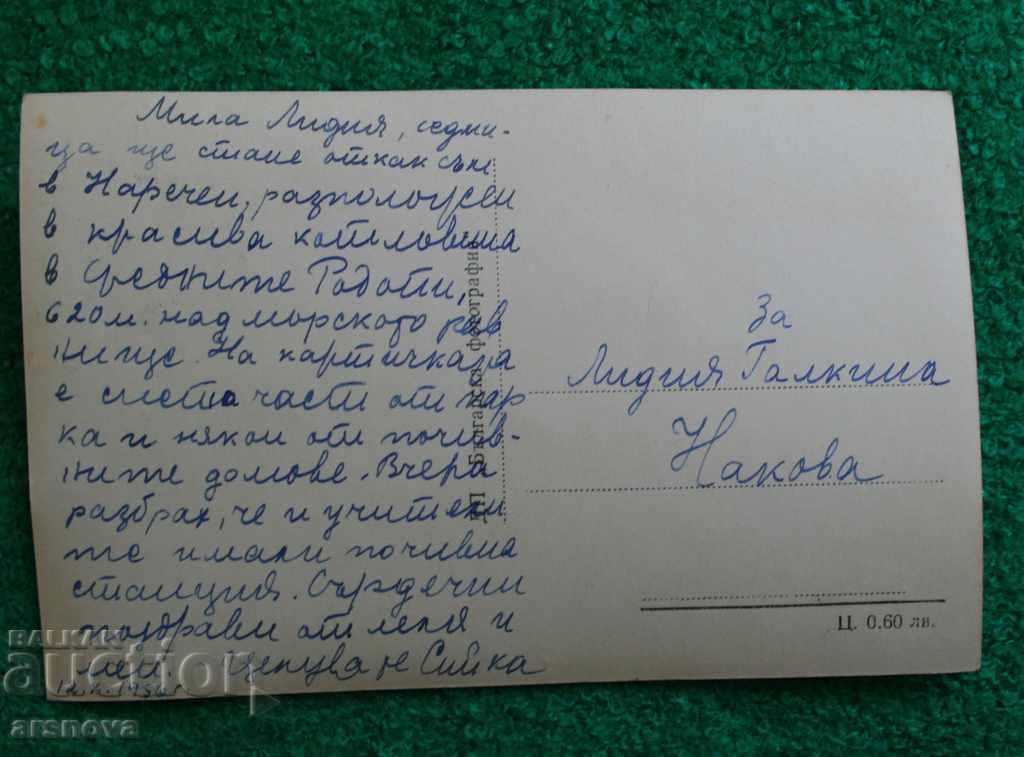 Мила Лидия, седми-
ца ще стане откак съм
в Наречен, разположен
в красива котловина
в Средните Родопи,
620 м. над морското рав
нище. На картичката
е снета част от пар
ка и някои от почив-
ните домове. Вчера
разбрах, че и учители
те имали почивна
станция. Сърдечни
поздрави от леля и
мен. Целува те Сийка
За
Лидия Галкина
Накова
ДП Българска фотография
Ц. 0.60 лв.
BALKAN
auction
arsnova